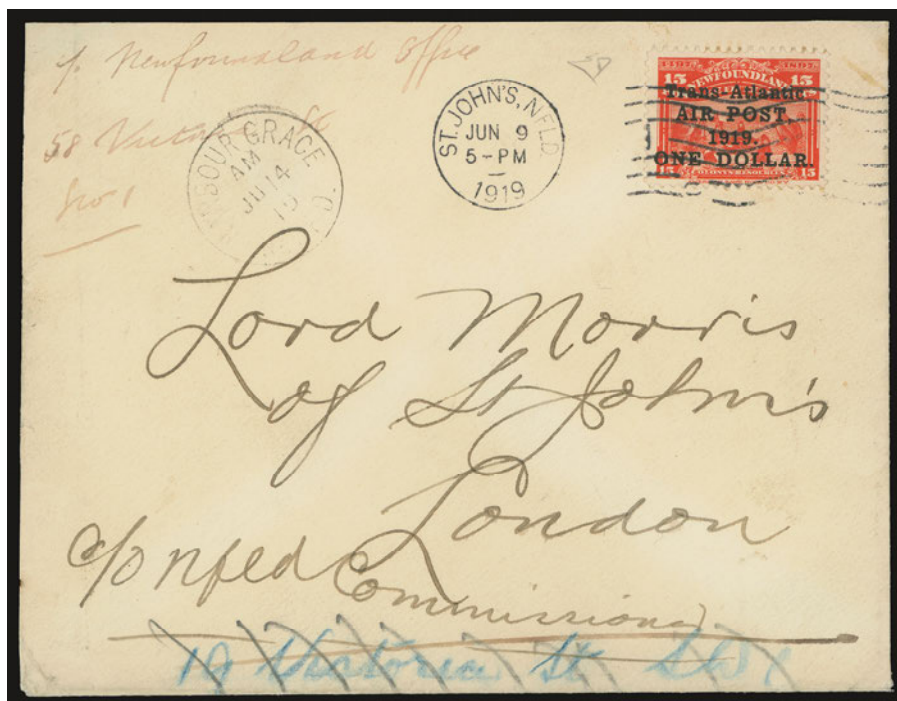 c/o Newfoundland Office
58 Victoria St
SW1
HARBOUR GRACE
AM
JU 14
19
ST. JOHN'S, NFLD.
JUN 9
5-PM
1919
1497 1897
15 NEWFOUNDLAND 15
Trans-Atlantic
AIR POST,
1919.
ONE DOLLAR.
15 15
Lord Morris
of St John's
London
c/o Nfled Commissioner
19 Victoria St SW1